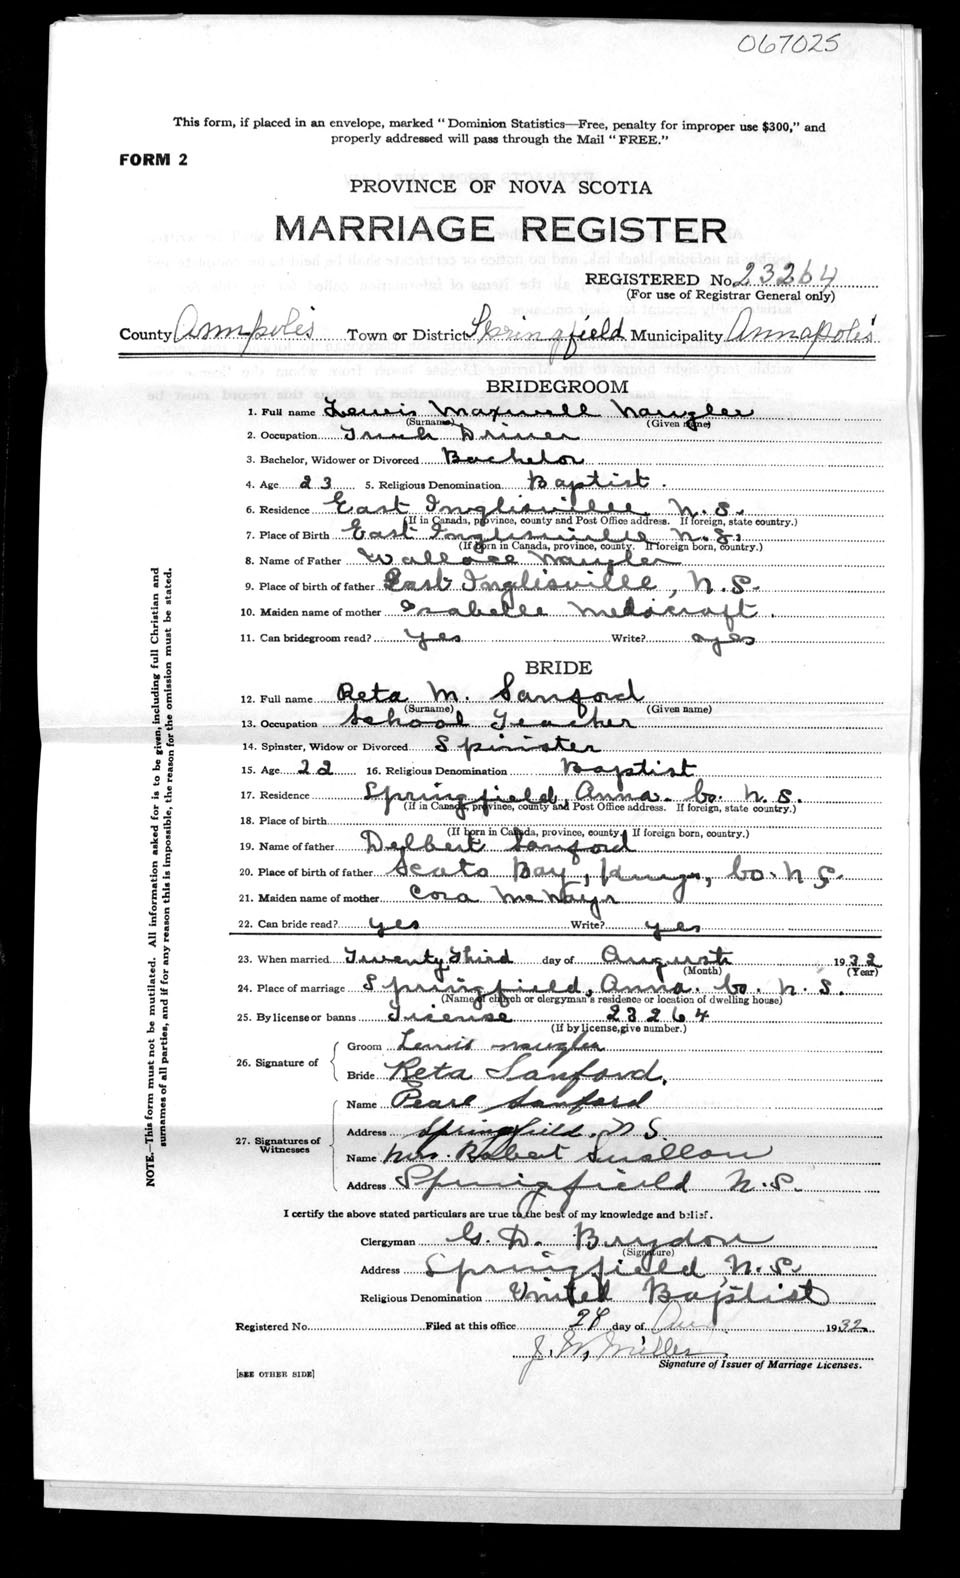 067025
This form, if placed in an envelope, marked "Dominion Statistics—Free, penalty for improper use $300," and
properly addressed will pass through the Mail "FREE."
FORM 2
PROVINCE OF NOVA SCOTIA
MARRIAGE REGISTER
REGISTERED No. 23264
(For use of Registrar General only)
County Annapolis Town or District Springfield Municipality Annapolis
BRIDEGROOM
1. Full name Lewis Maxwell Naugler
(Surname) (Given name)
2. Occupation Truck Driver
3. Bachelor, Widower or Divorced Bachelor
4. Age 23 5. Religious Denomination Baptist.
6. Residence East Inglisville N.S.
(If in Canada, province, county and Post Office address. If foreign, state country.)
7. Place of Birth East Inglisville N.S.
(If born in Canada, province, county. If foreign born, country.)
8. Name of Father Wallace Naugler
9. Place of birth of father East Inglisville, N.S.
10. Maiden name of mother Isabelle Medicraft.
11. Can bridegroom read? Yes Write? yes
BRIDE
12. Full name Reta M. Sanford
(Surname) (Given name)
13. Occupation School Teacher
14. Spinster, Widow or Divorced Spinister
15. Age 22 16. Religious Denomination Baptist
17. Residence Springfield, Anna. Co. N.S.
(If in Canada, province, county and Post Office address. If foreign, state country.)
18. Place of birth
(If born in Canada, province, county. If foreign born, country.)
19. Name of father Delbert Sanford
20. Place of birth of father Scots Bay, Kings, Co. N.S.
21. Maiden name of mother Cora McNayr
22. Can bride read? yes Write? yes
23. When married Twenty Third day of August 1932
(Month) (Year)
24. Place of marriage Springfield, Anna. Co. N.S.
(Name of church or clergyman's residence or location of dwelling house)
25. By license or banns License 23264
(If by license, give number.)
26. Signature of
Groom Lewis Naugler
Bride Reta Sanford.
27. Signatures of Witnesses
Name Pearl Sanford
Address Springfield. N.S.
Name Mrs. Robert Swallow
Address Springfield N.S.
I certify the above stated particulars are true to the best of my knowledge and belief.
Clergyman G. D. Brydon
(Signature)
Address Springfield, N.S.
Religious Denomination United Baptist
Registered No. Filed at this office 24 day of Aug 1932
J. W. Miller
Signature of Issuer of Marriage Licenses.
[SEE OTHER SIDE]
NOTE.—This form must not be mutilated. All information asked for is to be given, including full Christian and
surnames of all parties, and if for any reason this is impossible, the reason for the omission must be stated.